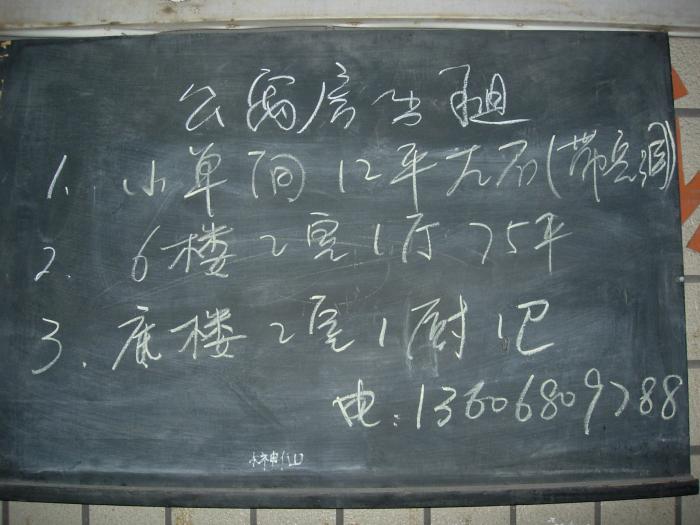 公寓房出租
1. 小单间 12平左右(带空调)
2. 6楼 2室1厅 75平
3. 底楼 2室1厨1卫
电: 13606809788
林神仙